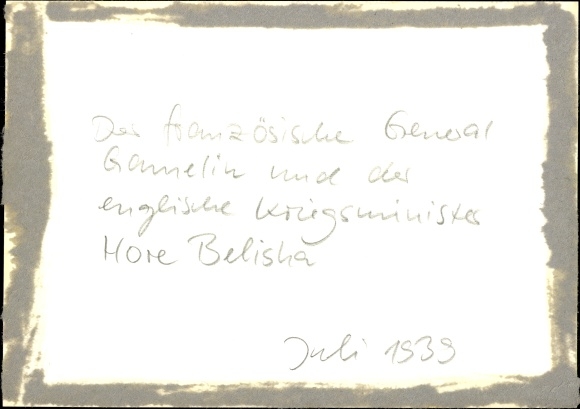 Der französische General
Gamelin und der
englische Kriegsminister
Hore Belisha
Juli 1939